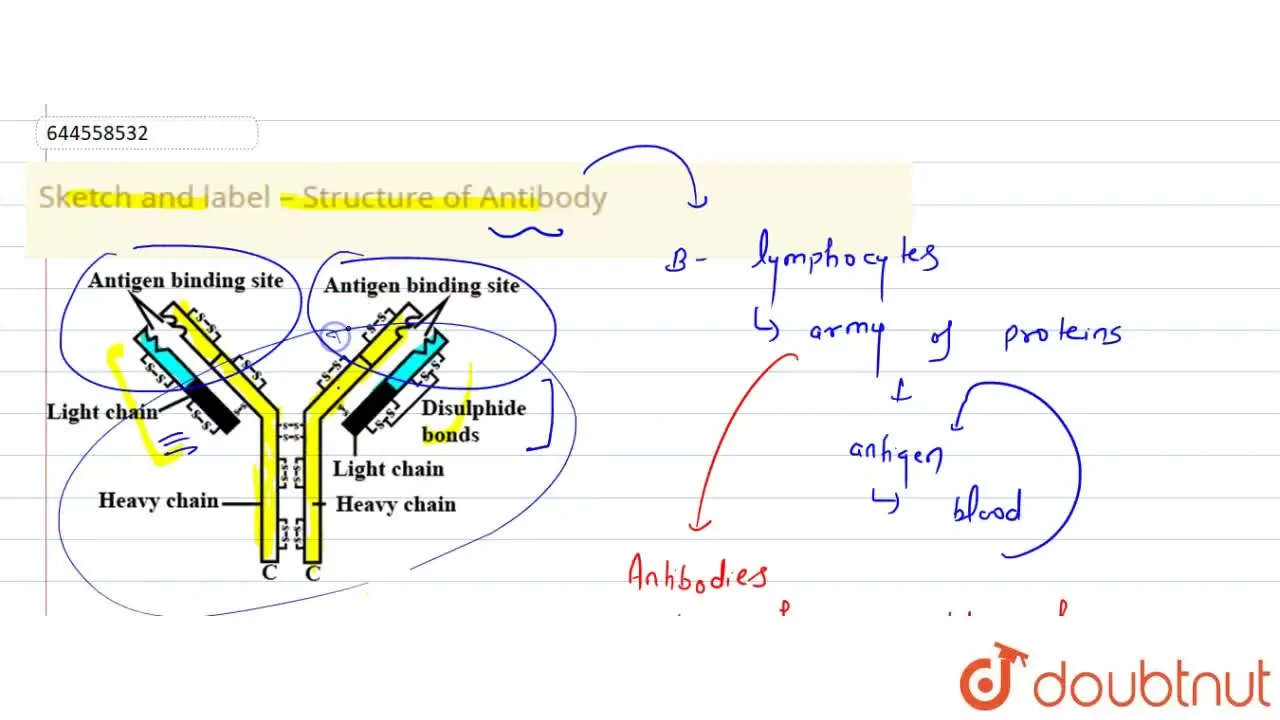 644558532
Sketch and label – Structure of Antibody
B- lymphocytes
Antigen binding site
Antigen binding site
army of proteins
Light chain
Disulphide
bonds
antigen
Light chain
Heavy chain
Heavy chain
blood
C
C
Antibodies
doubtnut